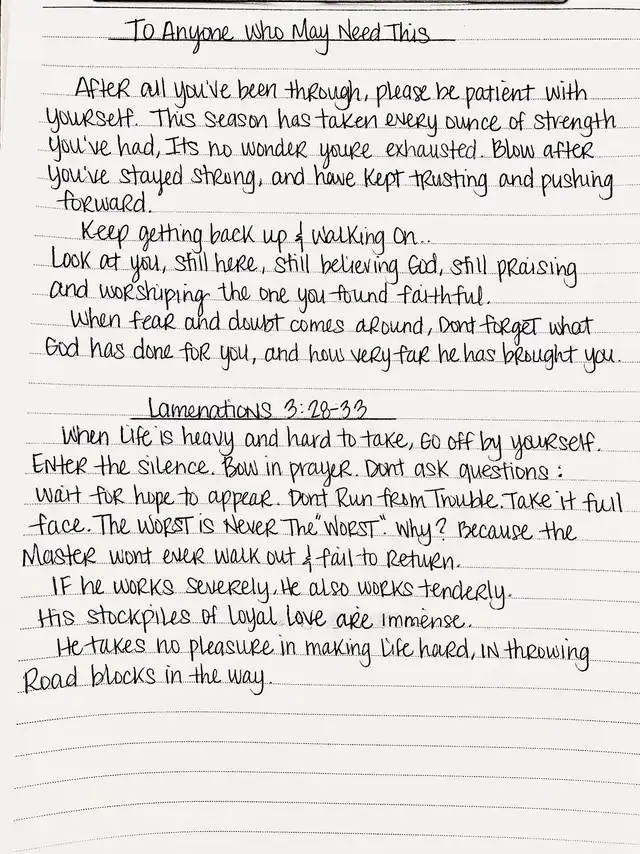 To Anyone Who May Need This
After all you've been through, please be patient with
yourself. This season has taken every ounce of strength
you've had, Its no wonder youre exhausted. Blow after
you've stayed strong, and have kept trusting and pushing
forward.
Keep getting back up & walking on..
Look at you, still here, still believing God, still praising
and worshiping the one you found faithful.
When fear and doubt comes around, Dont forget what
God has done for you, and how very far he has brought you.
Lamenations 3:28-33
When life is heavy and hard to take, Go off by yourself.
Enter the silence. Bow in prayer. Dont ask questions:
wait for hope to appear. Dont Run from Trouble. Take it full
face. The worst is Never The "WORST". Why? Because the
Master wont ever walk out & fail to Return.
IF he works severely, He also works tenderly.
His stockpiles of loyal love are immense.
He takes no pleasure in making life hard, IN throwing
Road blocks in the way.